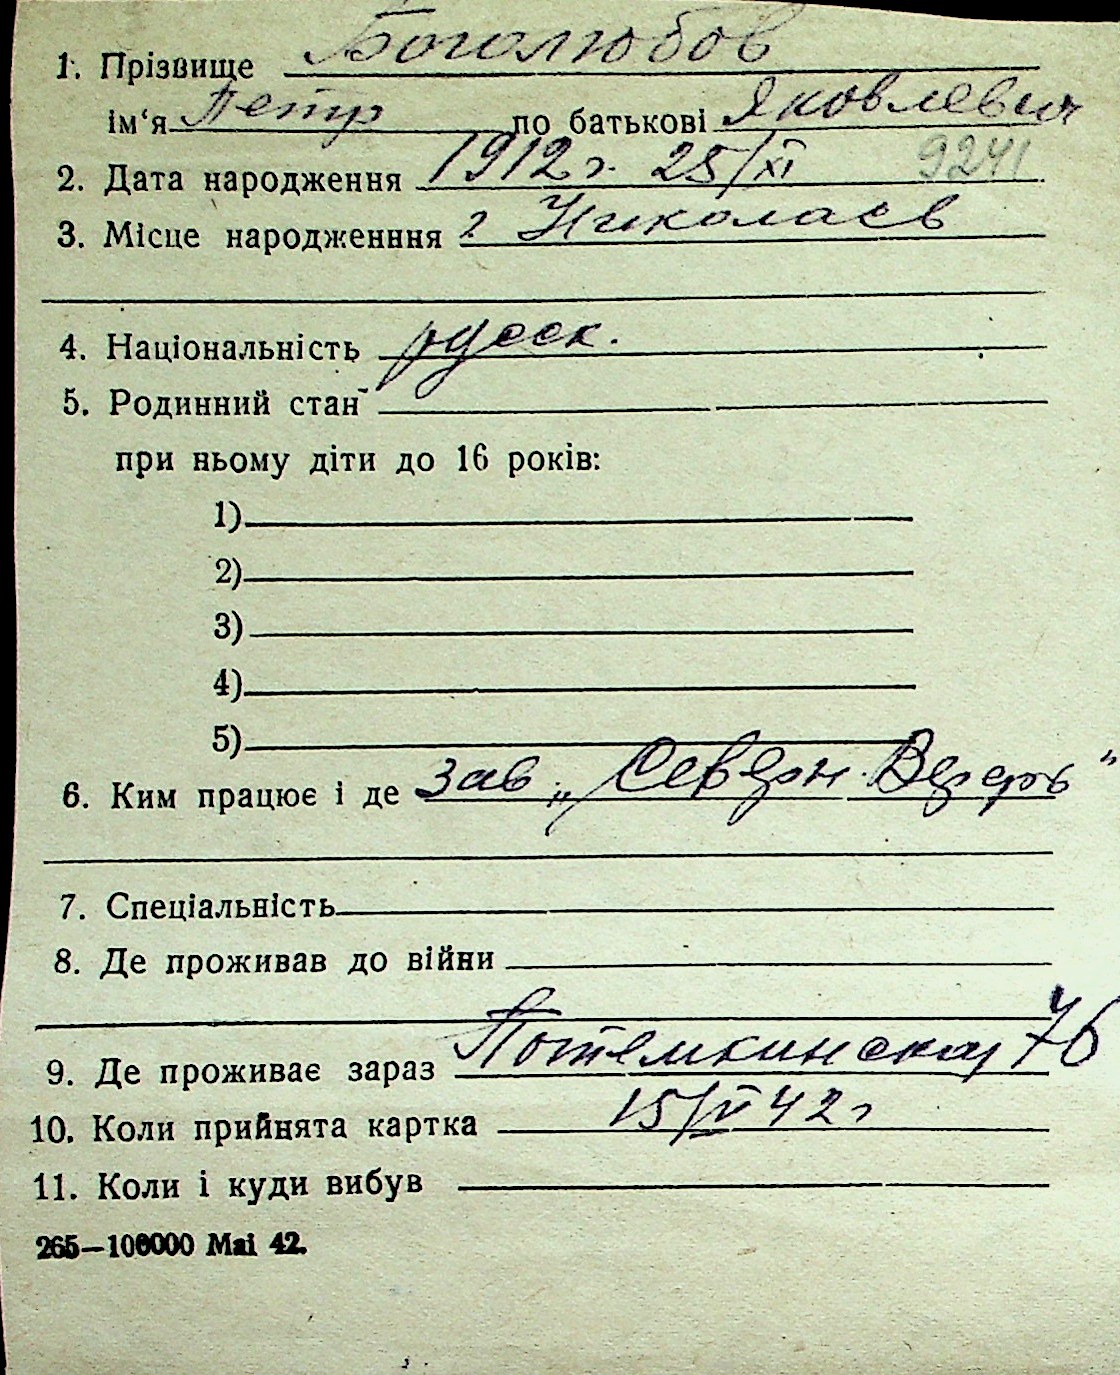 1. Прізвище Боголюбов
ім‘я Петр по батькові Яковлевич
2. Дата народження 1912 г. 25/XI 9241
3. Місце народженння г Николаев
4. Національність русск.
5. Родинний стан
при ньому діти до 16 років:
1)
2)
3)
4)
5)
6. Ким працює і де зав „Северн. Верфь"
7. Спеціальність
8. Де проживав до війни
9. Де проживає зараз Потемкинская 76
10. Коли прийнята картка 15/VI 42 г
11. Коли і куди вибув
265—100000 Mai 42.